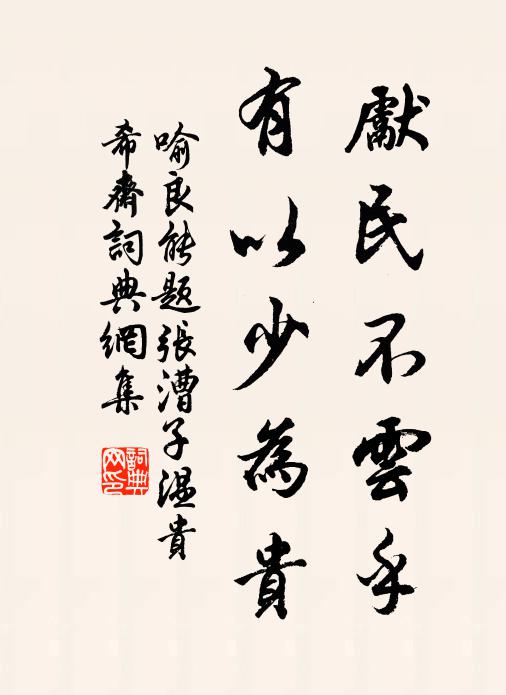 獻民不雲乎
有以少為貴
喻良能題張漕子温貴
希齋詞典網集
詞典網印